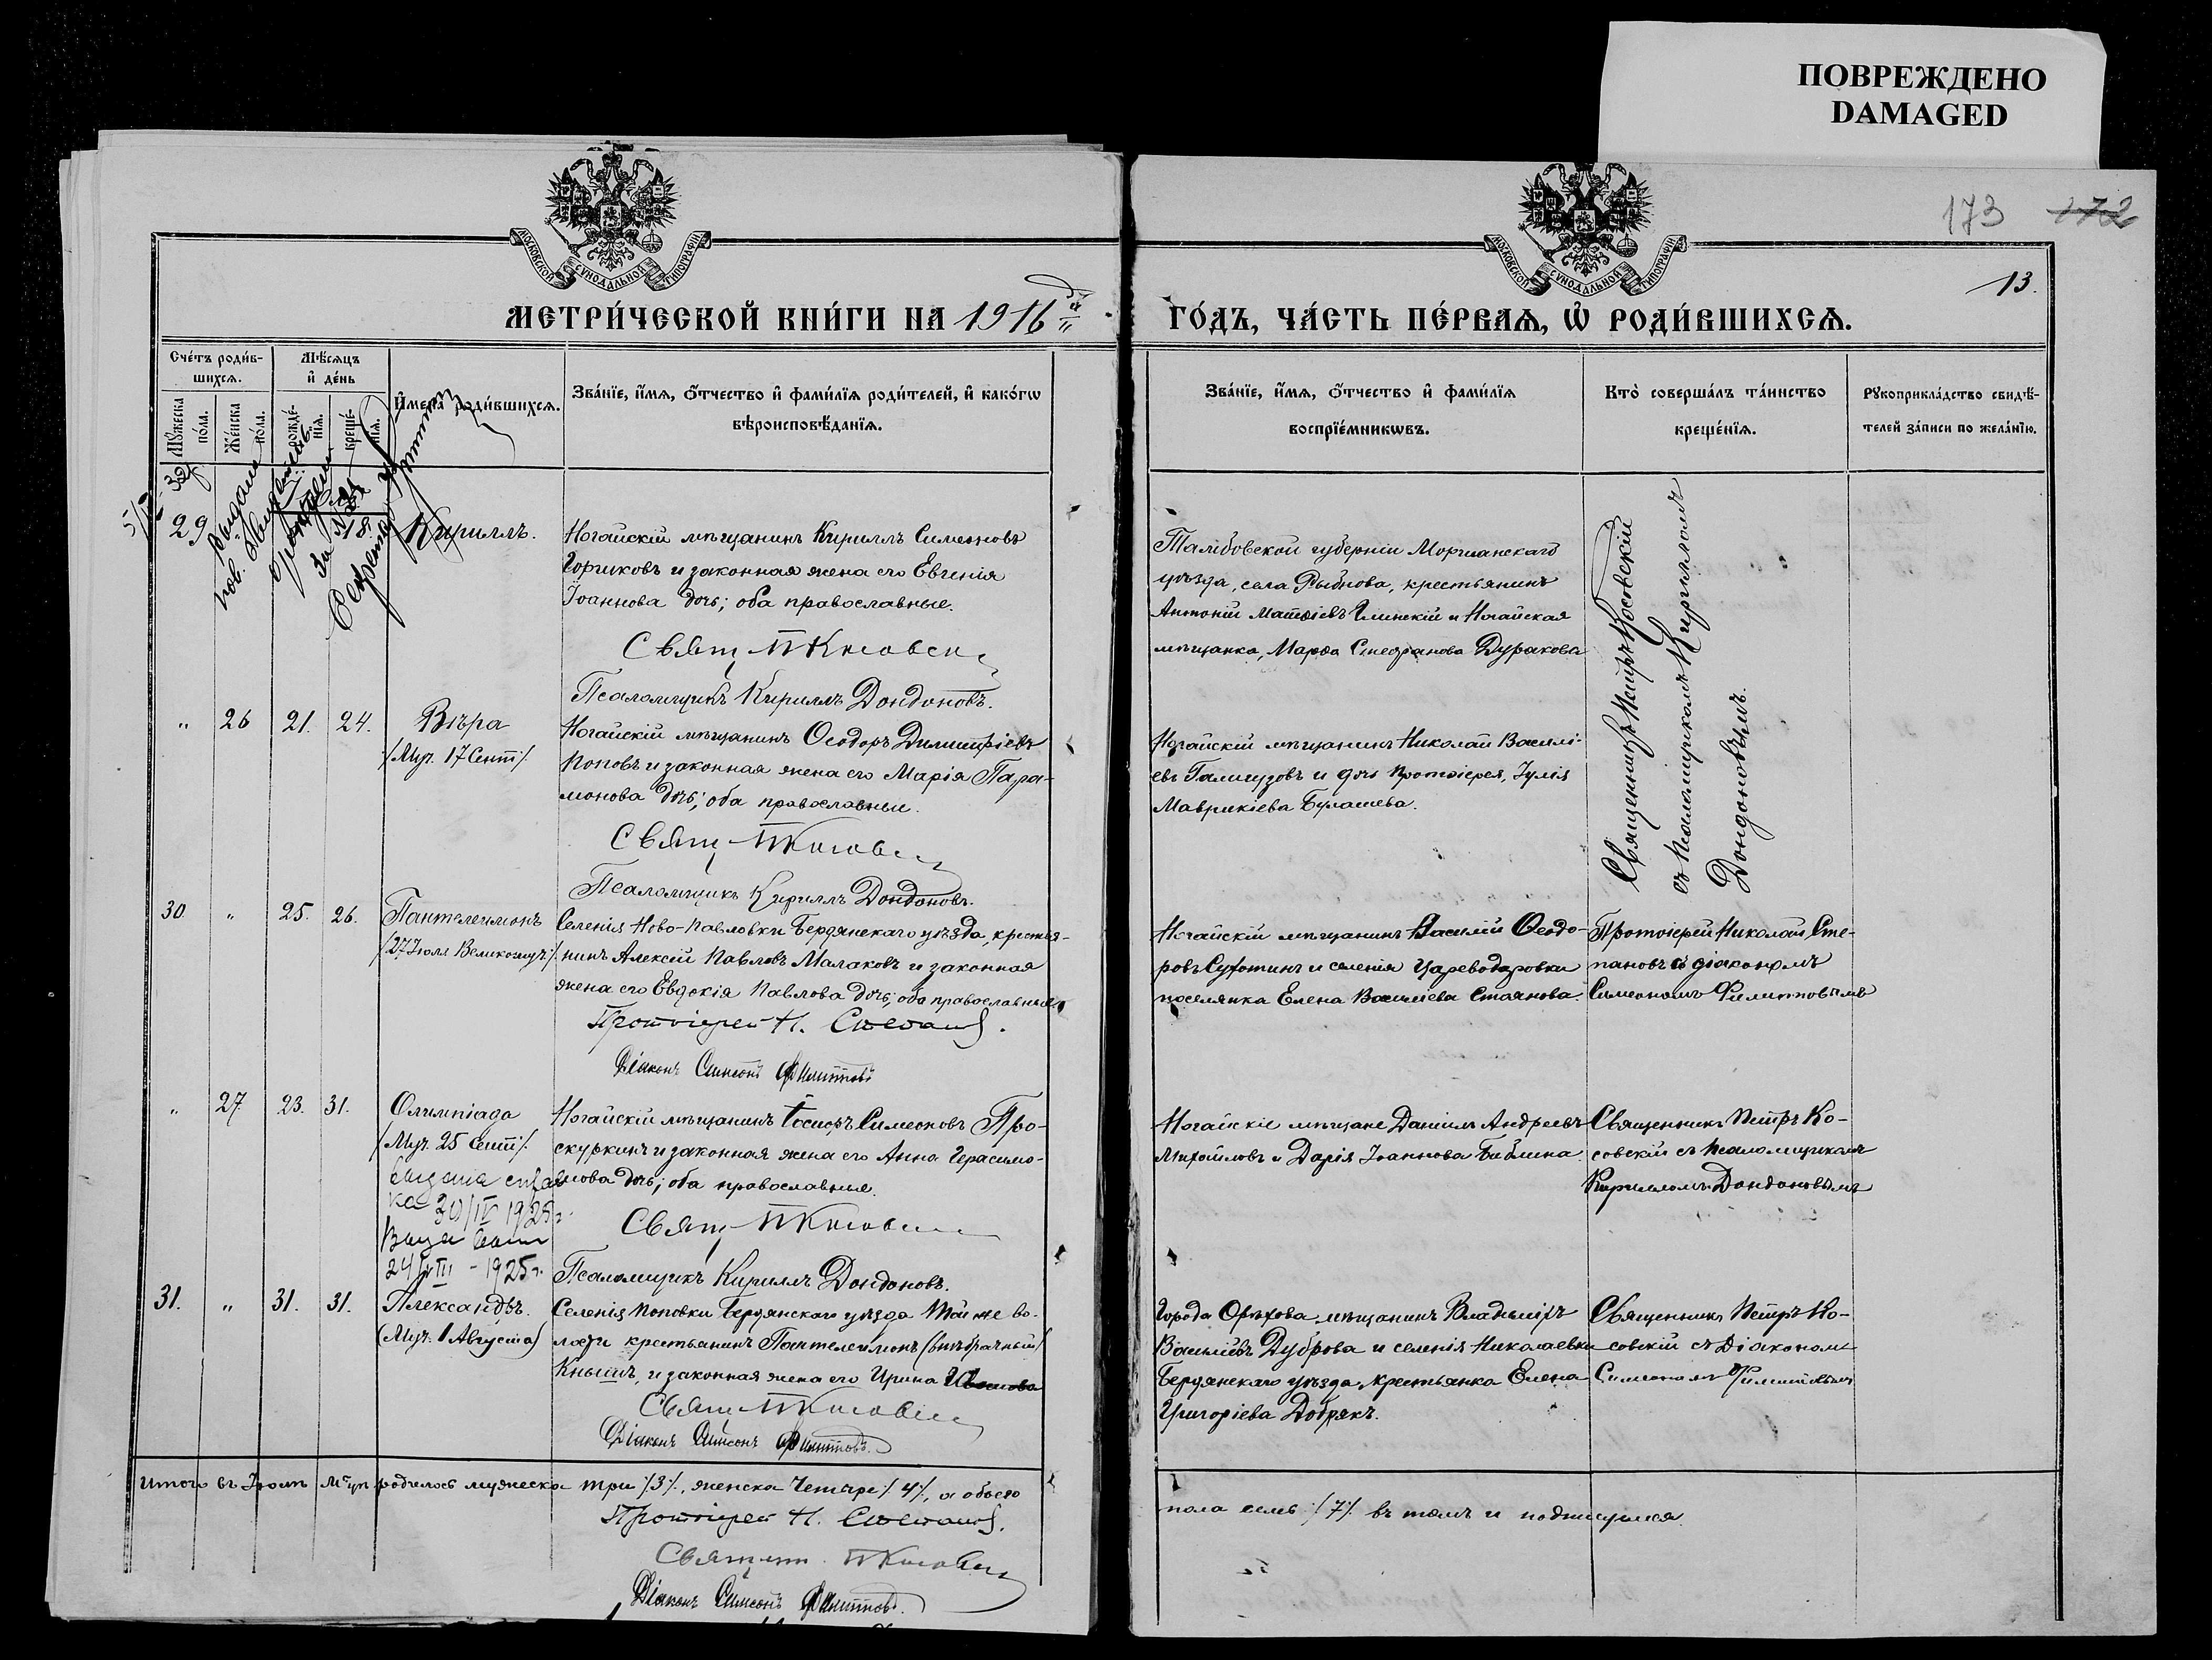 ПОВРЕЖДЕНО
DAMAGED
173 172
13.
МОСКОВСКОЙ СѴНОДАЛЬНОЙ ТИПОГРАФІИ
МОСКОВСКОЙ СѴНОДАЛЬНОЙ ТИПОГРАФІИ
МЕТРИ́ЧЕСКОЙ КНИ́ГИ НА 1916 й
ГО́ДЪ, ЧА́СТЬ ПЕ́РВАѦ, Ѡ РОДИ́ВШИХСѦ.
Сче́тъ роди́в-
шихсѧ.
Мѣ́сѧцъ
и҆ де́нь
Мꙋ́жеска по́ла.
Же́нска по́ла.
рожде́-нїѧ.
креще́-нїѧ.
И҆мена̀ роди́вшихсѧ.
Зва́нїе, и҆́мѧ, ѻ҆́тчество и҆ фами́лїѧ роди́телей, и҆ како́гѡ
вѣроисповѣ́данїѧ.
Зва́нїе, и҆́мѧ, ѻ҆́тчество и҆ фами́лїѧ
воспрїе́мникѡвъ.
Кто̀ соверша́лъ та́инство
креще́нїѧ.
Рꙋкоприкла́дство свидѣ́-
телей за́писи по жела́нїю.
29
18.
Кириллъ.
Ногайскій мѣщанинъ Кириллъ Симеоновъ
Горшковъ и законная жена его Евгенія
Іоаннова дочь; оба православные.
Свящ. П Косовск
Псаломщикъ Кириллъ Дондоновъ.
Тамбовской губерніи Моршанскаго
уѣзда, села Рыбнова, крестьянинъ
Антоній Матѳіевъ Глинскій и Ногайская
мѣщанка, Марѳа Стефанова Дуракова
Священникъ Петръ Косовскій
съ псаломщикомъ Кирилломъ
Дондоновымъ.
" 26 21. 24. Вѣра
/Муч. 17 Сент/.
Ногайскій мѣщанинъ Ѳеодоръ Димитріевъ
Поповъ и законная жена его Марія Пара-
монова дочь; оба православные.
Свящ. П Косовск
Псаломщикъ Кириллъ Дондоновъ.
Ногайскій мѣщанинъ Николай Василі-
евъ Галагузовъ и дочь протоіерея, Іулія
Маврикіева Булашева.
30 " 25. 26. Пантелеимонъ
/27 Іюля Великомуч/.
Селенія Ново-Павловки Бердянскаго уѣзда, крестья-
нинъ Алексій Павловъ Малаковъ и законная
жена его Евдокія Павлова дочь; оба православные.
Протоіерей Н. Степановъ.
Діаконъ Симеонъ Филипповъ
Ногайскій мѣщанинъ Василій Ѳеодо-
ровъ Сухотинъ и селенія Цареводаровки
поселянка Елена Василіева Стоянова.
Протоіерей Николай Сте-
пановъ съ діакономъ
Симеономъ Филипповымъ
" 27. 23. 31. Олимпіада
/Муч. 25 Сент/.
Выдана справ
ка 30/IV 1925 г.
24/VIII - 1925 г.
Ногайскій мѣщанинъ Іосифъ Симеоновъ Про-
скуркинъ и законная жена его Анна Герасимо-
мова дочь; оба православные.
Свящ. П Косовск
Псаломщикъ Кириллъ Дондоновъ.
Ногайскіе мѣщане Даніилъ Андреевъ
Михайловъ и Дарія Іоаннова Библина.
Священникъ Петръ Ко-
совскій съ псаломщикомъ
Кирилломъ Дондоновымъ
31. " 31. 31. Александръ.
(Муч. 1 Августа)
Селенія Поповки Бердянскаго уѣзда той же во-
лости крестьянинъ Пантелеймонъ (внѣбрачный)
Кнышъ, и законная жена его Ирина
Свящ. П Косовск
Діаконъ Симеонъ Филипповъ.
Города Орѣхова, мѣщанинъ Владиміръ
Васильевъ Дуброва и селенія Николаевки
Бердянскаго уѣзда, крестьянка Елена
Григоріева Добрякъ.
Священникъ Петръ Ко-
совскій съ Діакономъ
Симеономъ Филипповымъ
Итого въ Іюлѣ М-цѣ родилось мужеска три /3/., женска четыре /4/., а обоего
пола семь /7/. въ томъ и подпишемся.
Протоіерей Н. Степановъ.
Священ. П Косовск
Діаконъ Симеонъ Филипповъ.